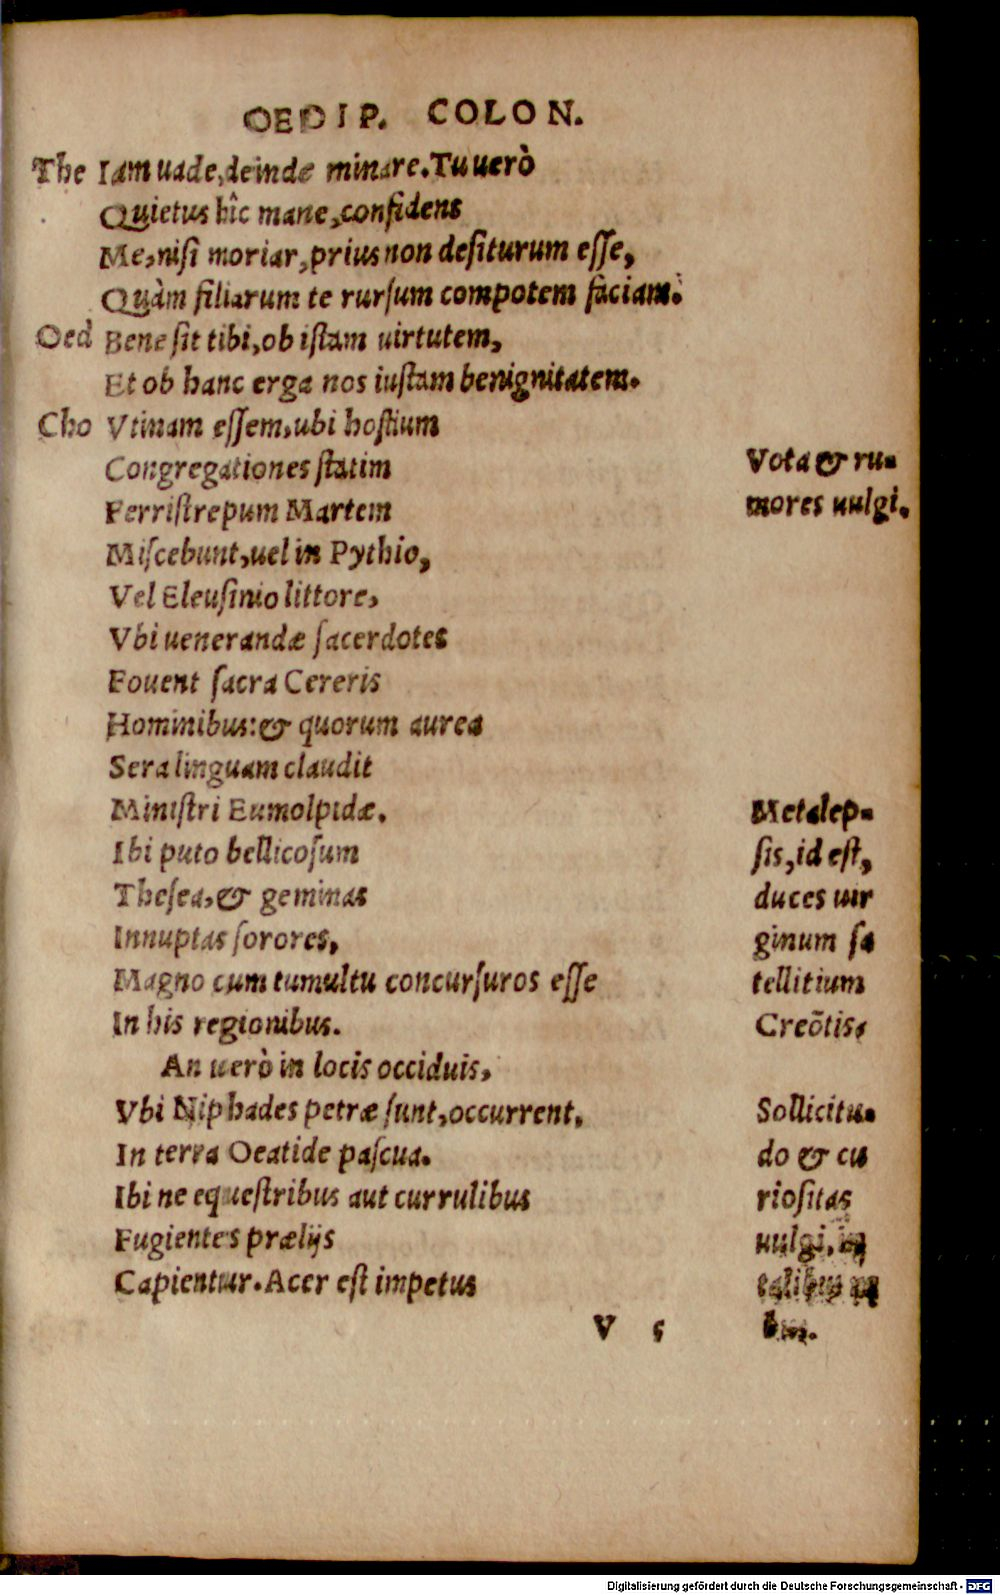 OEDIP. COLON.
The Iam uade, deinde minare. Tu uerò
Quietus hîc mane, confidens
Me, nisi moriar, prius non desiturum esse,
Quàm filiarum te rursum compotem faciam.
Oed Bene sit tibi, ob istam uirtutem,
Et ob hanc erga nos iustam benignitatem.
Cho Vtinam essem, ubi hostium
Congregationes statim
Ferristrepum Martem
Miscebunt, uel in Pythio,
Vel Eleusinio littore,
Vbi uenerandæ sacerdotes
Fouent sacra Cereris
Hominibus: & quorum aurea
Sera linguam claudit
Ministri Eumolpidæ.
Ibi puto bellicosum
Thesea, & geminas
Innuptas sorores,
Magno cum tumultu concursuros esse
In his regionibus.
An uerò in locis occiduis,
Vbi Niphades petræ sunt, occurrent,
In terra Oeatide pascua.
Ibi ne equestribus aut currulibus
Fugientes prælijs
Capientur. Acer est impetus
V 5
Vota & ru-
mores uulgi.
Metalep-
sis, id est,
duces uir
ginum sa
tellitium
Creõtis:
Sollicitu-
do & cu
riositas
uulgi, in
talibus re
bus.